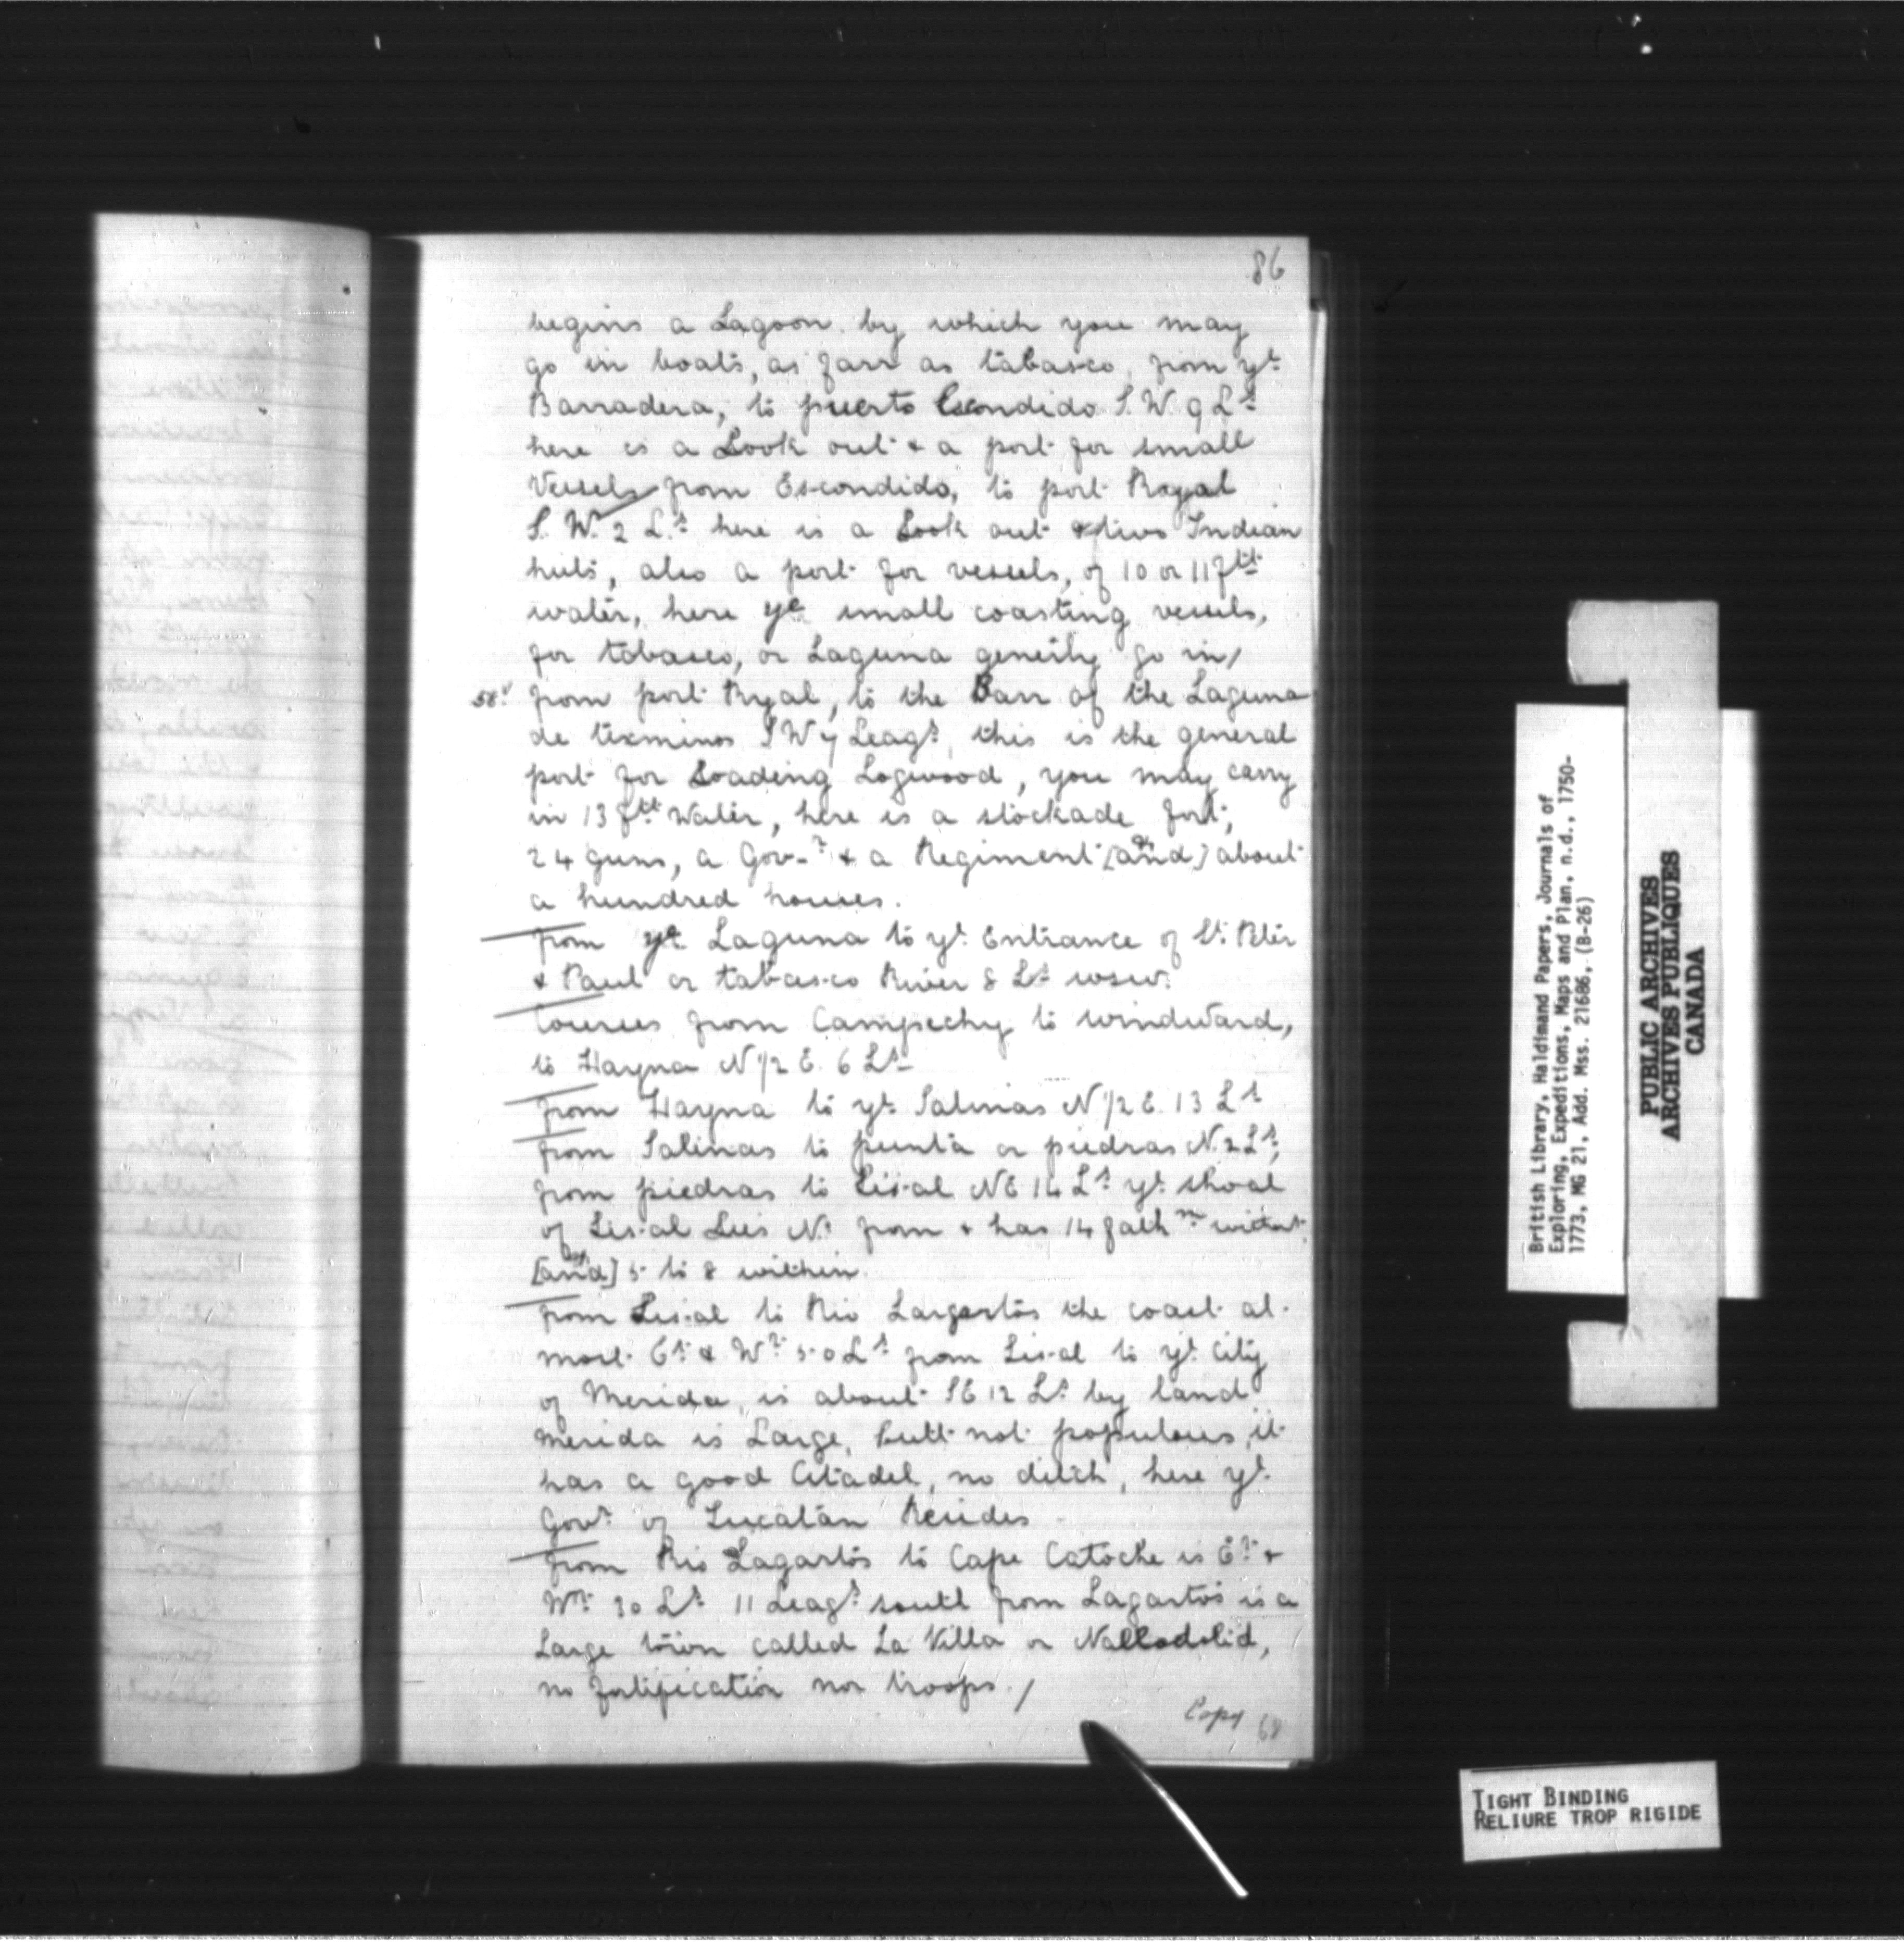 86
begins a Lagoon by which you may
go in boats, as farr as tabasco, from yt
Barradera, to puerto Escondido S.W. 9 Ls
here is a Look out & a port for small
Vessels from Escondido, to port Royal
S.W. 2 Ls here is a Look out & two Indian
huts, also a port for vessels, of 10 or 11 ftt
water, here ye small coasting vessels,
for tobasco, or Laguna generly go in/
58. from port Ryal, to the Barr of the Laguna
de terminos SW 7 Leags, this is the general
port for Loading Logwood, you may carry
in 13 ftt Water, here is a stockade fort,
24 guns, a Gov-r & a Regiment [and] about
a hundred houses.
from ye Laguna to yt Entrance of St Peter
& Paul or tabasco River 8 Ls wsw.
Courses from Campechy to windward,
to Hayna N 1/2 E. 6 Ls
from Hayna to yt Salinas N 1/2 E. 13 Ls
from Salinas to punta or piedras N. 2 Ls,
from piedras to Sisal NE 14 Ls yt shoal
of Sisal Lies N. from & has 14 fathm without
[and] 5 to 8 within.
from Sisal to Rio Largartos the coast al-
most Et & Wt 50 Ls from Sisal to yt City
of Merida, is about SE 12 Ls by land
merida is Large, butt not populous, it
has a good Citadel, no ditch, here yt
Govr of Lucatan Resides
from Rio Lagartos to Cape Catoche is Et &
Wt 30 Ls 11 Leags south from Lagartos is a
Large town called La Villa or Nalladolid,
no fortification nor troops./
Copy 68
British Library, Haldimand Papers, Journals of
Exploring, Expeditions, Maps and Plan, n.d., 1750-
1773, MG 21, Add. Mss. 21686, (B-26)
PUBLIC ARCHIVES
ARCHIVES PUBLIQUES
CANADA
TIGHT BINDING
RELIURE TROP RIGIDE